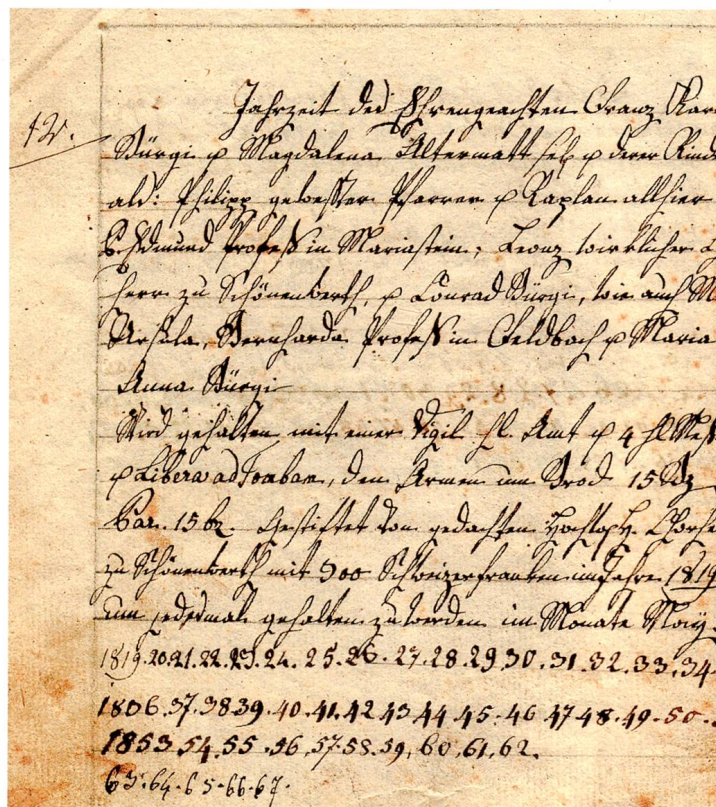 12.
Jahrzeit des Ehrengeachten Franz Kar
Bürgi u Magdalena Altermatt sel. u derer Kind
als: Philipp gewesster Pfarrer u Kaplan allhier
P. Edmund Profess in Mariastein, Leonz wirklicher
Herr zu Schönenwerth, u Conrad Bürgi, wie auch M
Ursula, Bernharda Profess in Feldbach u Maria
Anna Bürgi
Wird gehalten mit einer Vigil hl. Amt u 4 hl Mess
u Libera ad Tombam, den Armen um Brod 15 Bz
Par. 15 bz. Gestiftet von gedachten Chorhe
zu Schönenwerth mit 900 Schweizerfranken im Jahre 1819
um jedesmal gehalten zu werden im Monate May.
1819.20.21.22.23.24.25.26.27.28.29.30.31.32.33.34.
1836.37.38 39.40.41.42 43 44.45.46 47 48.49.50.
1853.54.55.56,57.58.59,60,61,62.
63.64.65.66.67.